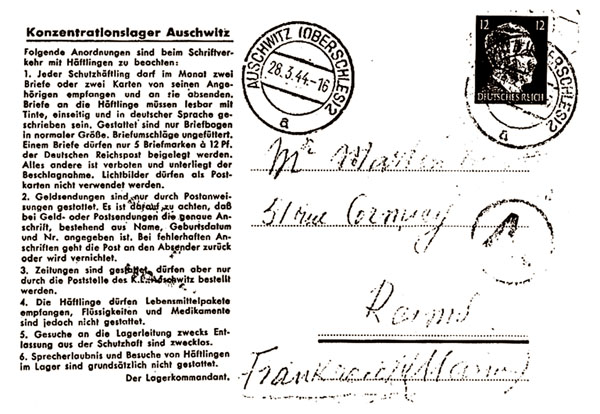 Konzentrationslager Auschwitz
Folgende Anordnungen sind beim Schriftver-
kehr mit Häftlingen zu beachten:
1. Jeder Schutzhäftling darf im Monat zwei
Briefe oder zwei Karten von seinen Ange-
hörigen empfangen und an sie absenden.
Briefe an die Häftlinge müssen lesbar mit
Tinte, einseitig und in deutscher Sprache ge-
schrieben sein. Gestattet sind nur Briefbogen
in normaler Größe. Briefumschläge ungefüttert.
Einem Briefe dürfen nur 5 Briefmarken à 12 Pf.
der Deutschen Reichspost beigelegt werden.
Alles andere ist verboten und unterliegt der
Beschlagnahme. Lichtbilder dürfen als Post-
karten nicht verwendet werden.
2. Geldsendungen sind nur durch Postanwei-
sungen gestattet. Es ist darauf zu achten, daß
bei Geld- oder Postsendungen die genaue An-
schrift, bestehend aus Name, Geburtsdatum
und Nr. angegeben ist. Bei fehlerhaften An-
schriften geht die Post an den Absender zurück
oder wird vernichtet.
3. Zeitungen sind gestattet, dürfen aber nur
durch die Poststelle des K.L. Auschwitz bestellt
werden.
4. Die Häftlinge dürfen Lebensmittelpakete
empfangen, Flüssigkeiten und Medikamente
sind jedoch nicht gestattet.
5. Gesuche an die Lagerleitung zwecks Ent-
lassung aus der Schutzhaft sind zwecklos.
6. Sprecherlaubnis und Besuche von Häftlingen
im Lager sind grundsätzlich nicht gestattet.
Der Lagerkommandant.
AUSCHWITZ (OBERSCHLES)2
28.3.44.-16
a
12 12
DEUTSCHES REICH
Mr
51 rue
Reims
Frankreich (Marne)